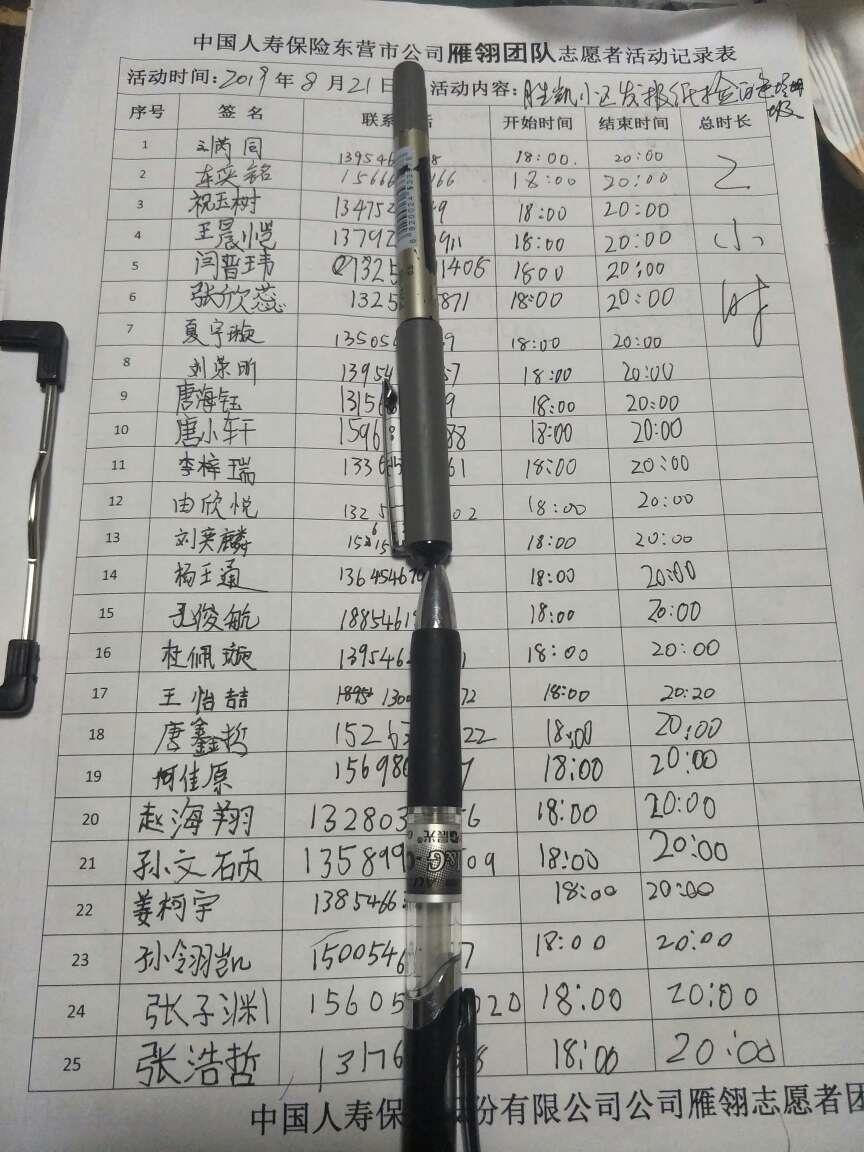 中国人寿保险东营市公司雁翎团队志愿者活动记录表
活动时间:2019年8月21日 活动内容:胜凯小区发报纸捡白色垃圾
序号 签名 联系 话 开始时间 结束时间 总时长
1 刘芮同 139546 8 18:00. 20:00 2小时
2 车奕铭 15666 166 18:00 20:00
3 祝玉树 134752 49 18:00 20:00
4 王晨恺 13792 911 18:00 20:00
5 闫普玮 1325 1406 1800 20:00
6 张欣蕊 1325 871 18:00 20:00
7 夏宇璇 13505 9 18:00 20:00
8 刘荣昕 13954 57 18:00 20:00
9 唐海钰 1315 9 18:00 20:00
10 唐小轩 1596 88 18:00 20:00
11 李梓瑞 133 61 18:00 20:00
12 由欣悦 1325 02 18:00 20:00
13 刘奕麟 18:00 20:00
14 杨玉通 136454670 18:00 20:00
15 孔俊航 1885461 18:00 20:00
16 杜佩璇 139546 1 18:00 20:00
17 王怡喆 130 72 18:00 20:20
18 唐鑫哲 15263 22 18:00 20:00
19 何佳原 15698 7 18:00 20:00
20 赵海翔 132803 6 18:00 20:00
21 孙文硕 135899 09 18:00 20:00
22 姜柯宇 1385466 18:00 20:00
23 孙翎凯 1500546 7 18:00 20:00
24 张子渊 15605 020 18:00 20:00
25 张浩哲 13176 8 18:00 20:00
中国人寿保 份有限公司公司雁翎志愿者团